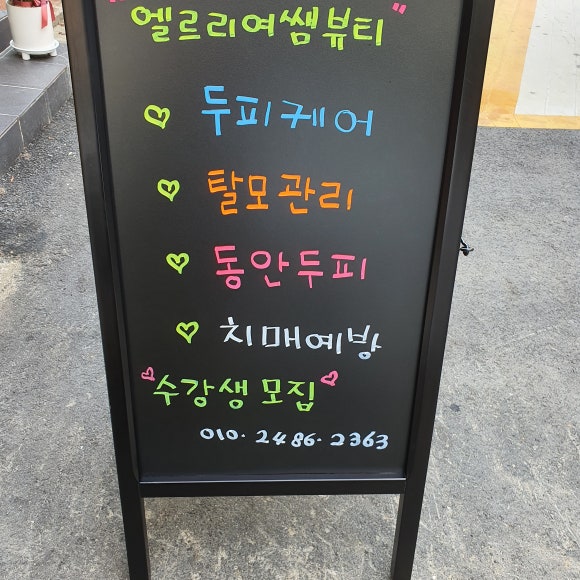 "엘르리여쌤뷰티"
두피케어
탈모관리
동안두피
치매예방
수강생모집
010. 2486. 2363